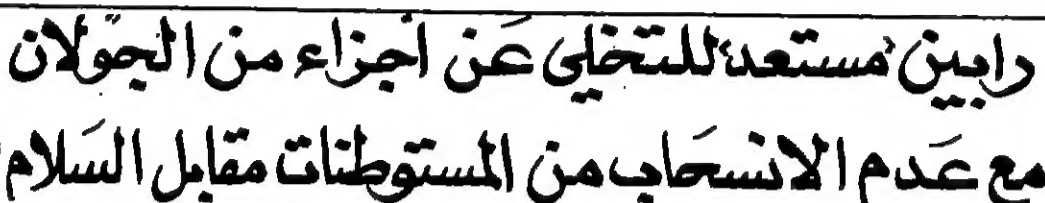 رابين "مستعد" للتخلي عَن أجزاء من الجوَلان
مع عَدم الانسحَاب من المستوطنات مقابل السَلام